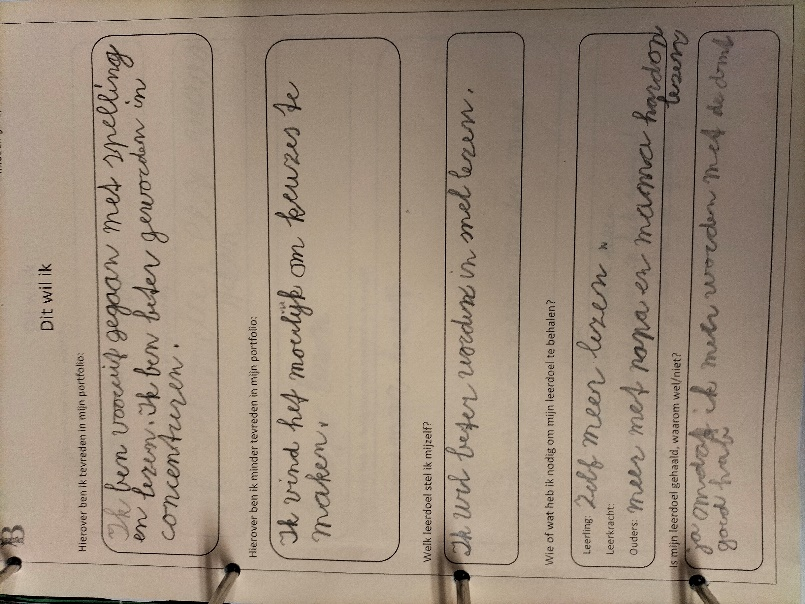 Dit wil ik
Hierover ben ik tevreden in mijn portfolio:
Ik ben vooruit gegaan met spelling
en lezen. Ik ben beter geworden in
concenturen.
Hierover ben ik minder tevreden in mijn portfolio:
Ik vind het moeilijk om keuzes te
maken.
Welk leerdoel stel ik mijzelf?
Ik wil beter worden in snel lezen.
Wie of wat heb ik nodig om mijn leerdoel te behalen?
Leerling: Zelf meer lezen.
Leerkracht:
Ouders: meer met papa en mama hardop
lezen
Is mijn leerdoel gehaald, waarom wel/niet?
ja omdat ik meer woorden met de dmt
goed had